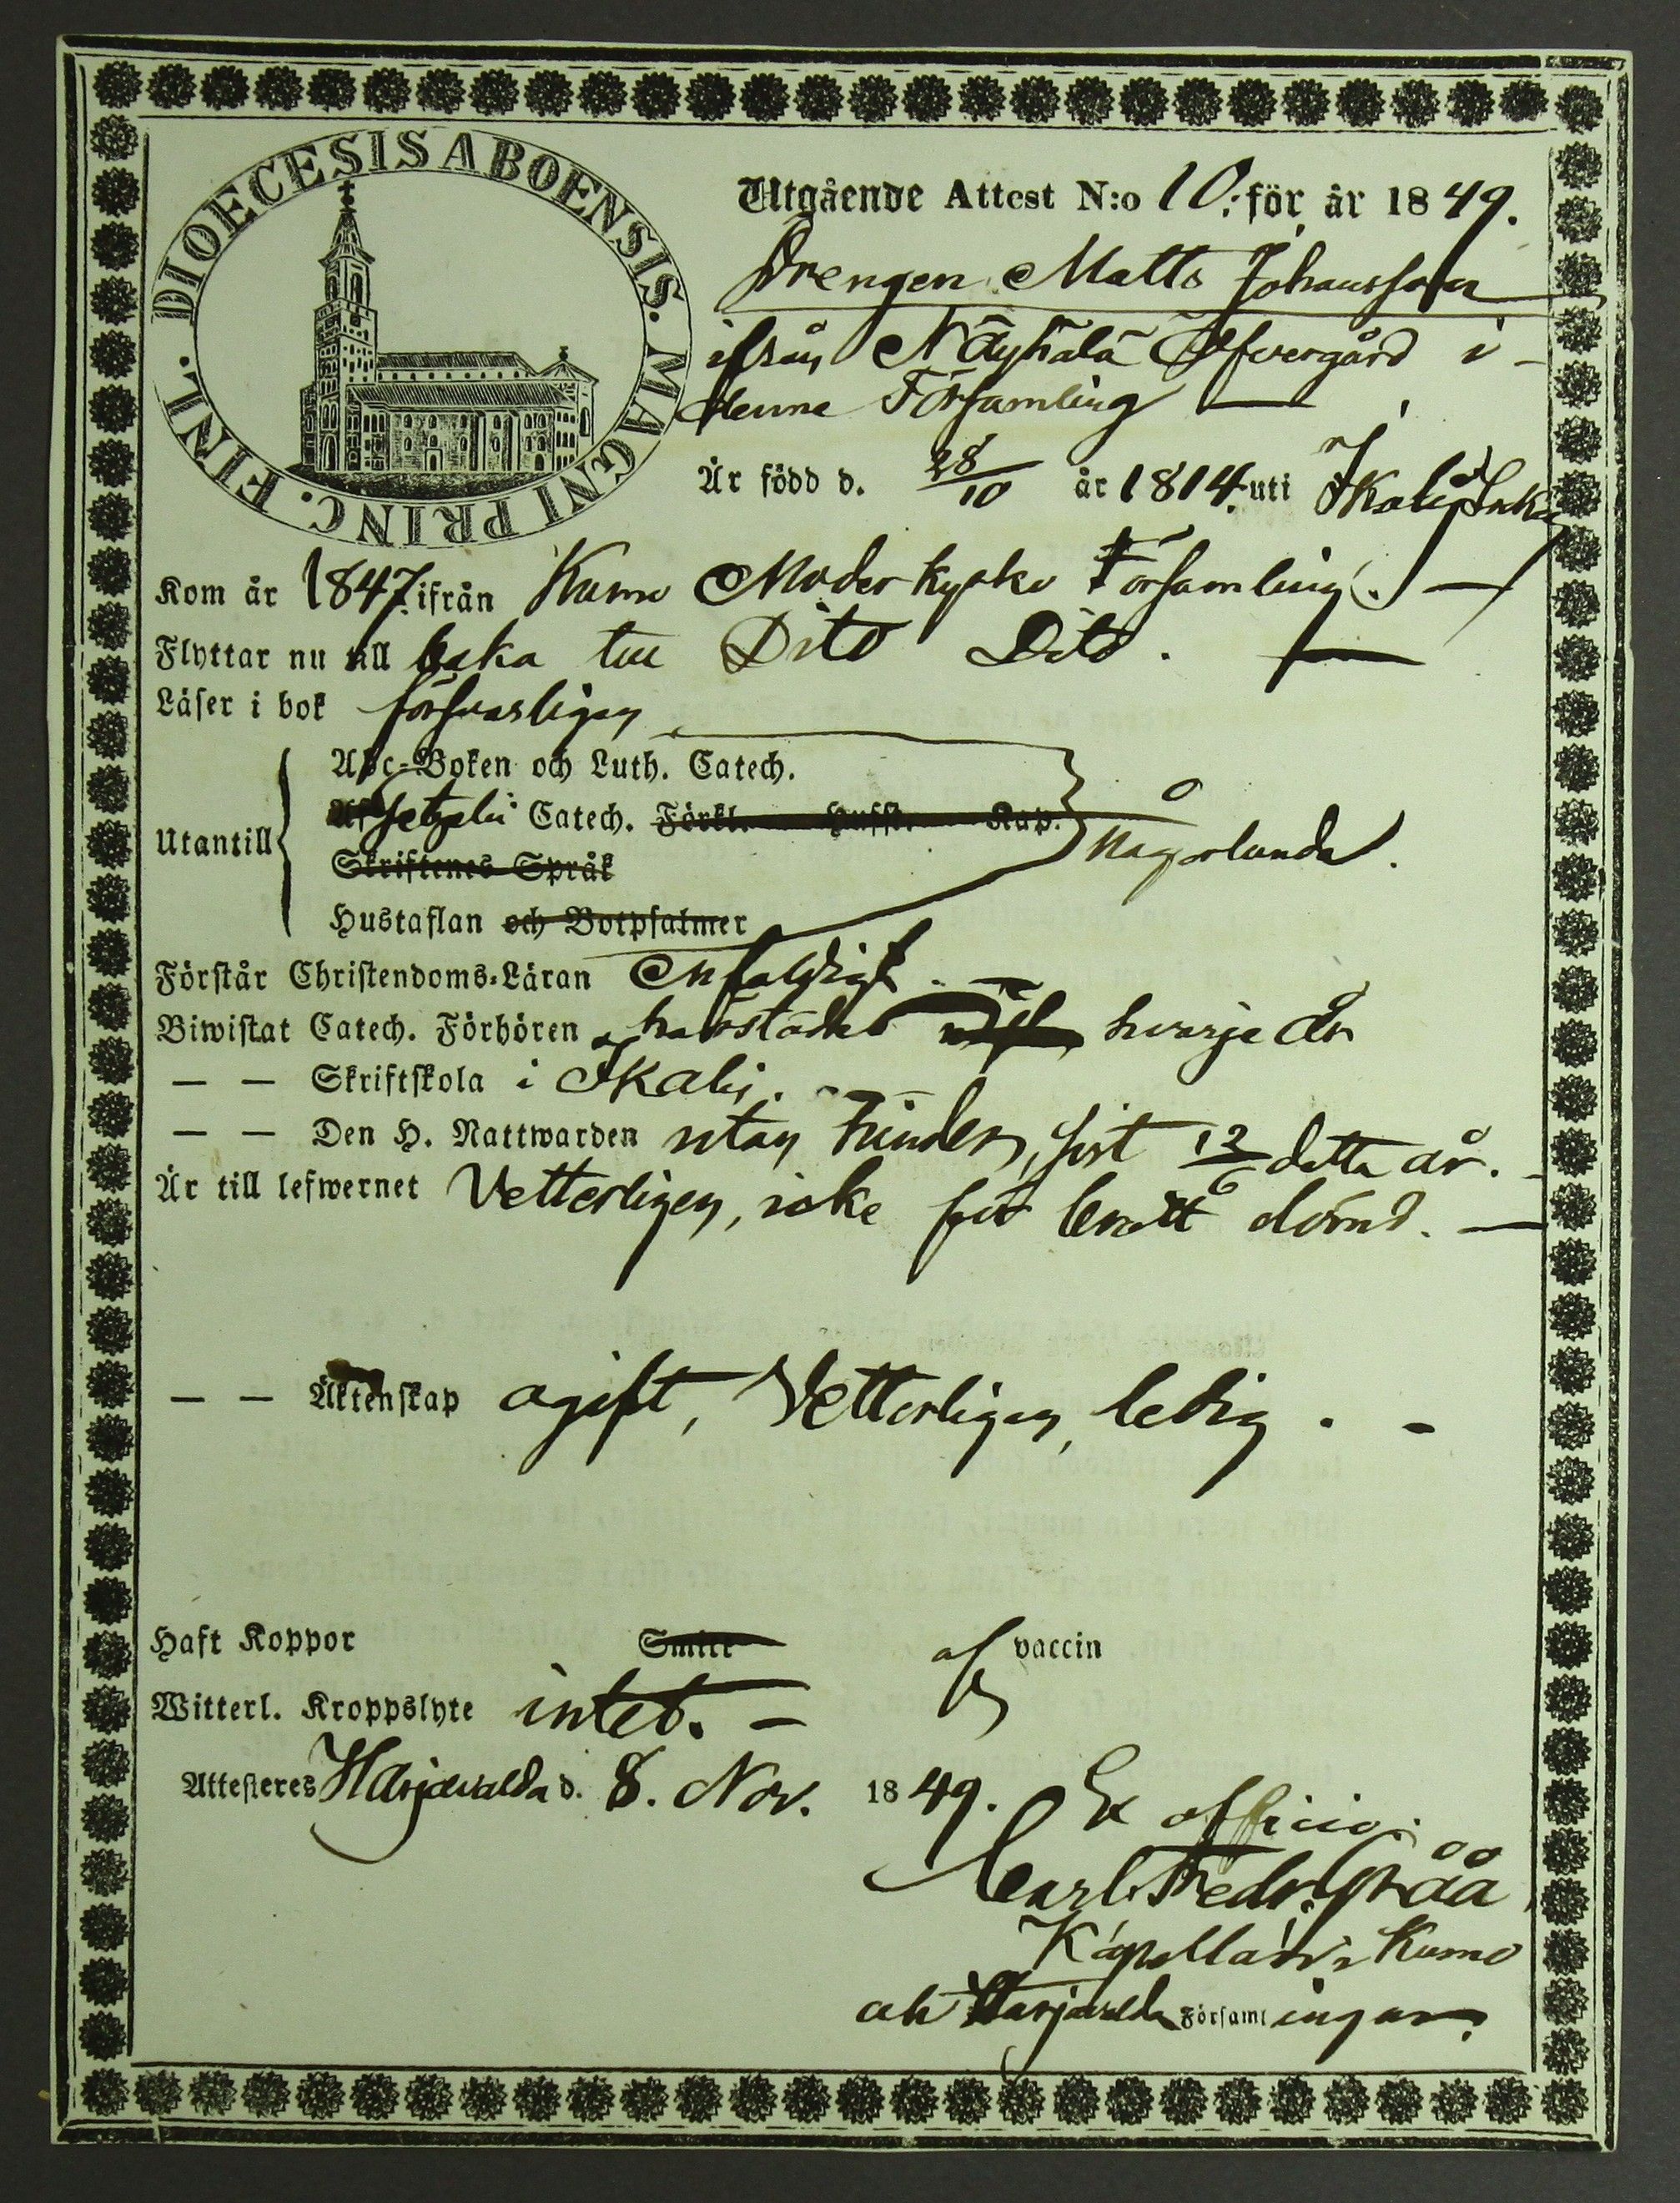 DIOECESIS ABOENSIS. MAGNI PRINC. FINL.
Utgående Attest N:o 10. för år 1849.
Drengen Matts Johansson
ifrån Näyhälä Öfvergård i
denna Församling
Är född d. 28/10 år 1814 uti Ikalis
Kom år 1847 ifrån Kumo Moderkyrko Församling.
Flyttar nu till baka till Dito Dito.
Läser i bok försvarligen
Utantill
Abc-Boken och Luth. Catech.
Catech. Förkl. Hufst. Kap.
Skriftenes Språk
Hustaflan och Botpsalmer
någorlunda.
Förstår Christendoms-Läran Enfaldigt.
Biwistat Catech. Förhören härstädes hvarje år
— — Skriftskola i Ikalis.
— — Den H. Nattwarden utan hinder, sist 12/6 detta år.
Är till lefwernet Vetterligen, icke för brott dömd.
— — Äktenskap ogift, Vetterligen, ledig.
Haft Koppor Smitt af vaccin
Witterl. Kroppslyte intet.
Attesteres Harjavalda d. 8. Nov. 1849. Ex officio.
Carl Fredr. Gråå
Kapellan i Kumo
och Harjavalda Församlingar.